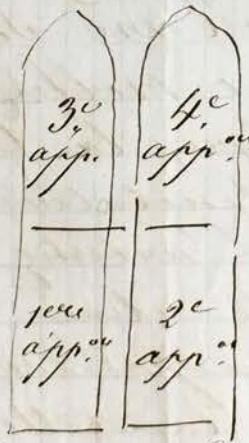 3e
app.
4e
app.on
1ère
app.on
2e
app.on